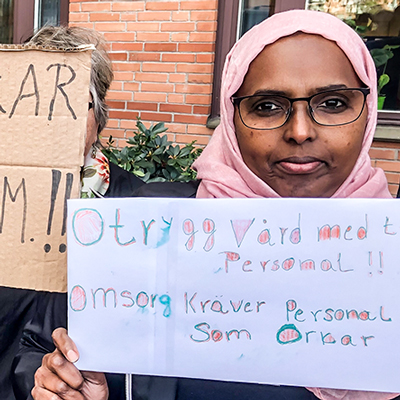 KAR
M.!!
Otrygg Vård med t
Personal !!
Omsorg Kräver Personal
Som Orkar